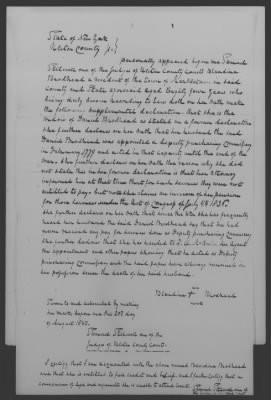 State of New York
Ulster County } ss
personally appeared before me
one of the Judges of Ulster County Court Blandina
Brodhead a resident of the Town of in said
County and State aforesaid aged Eighty four Years who
being duly sworn according to law doth on her oath make
the following supplemental declaration that she is the
widow of Daniel Brodhead as stated in a former declaration
She further declares on her oath that her husband the said
Daniel Brodhead was appointed a deputy purchasing commissary
in February 1779 and acted in that capacity until the end of the
war. She further declares on her oath the reason why she did
not state this in her former declaration is that her Attorney
informed her at that time that for such services they were not
entitled to pay but now she claims an increase of her pension
for those services under the act of Congress of July 4th 1836.
She further declares on her oath that since the war she has frequently
heard her husband the said Daniel Brodhead say that he had
never received any pay for services done as Deputy purchasing commissary
She further declares that she has handed to her agent
the appointment and other papers shewing that he acted as Deputy
purchasing commissary and the said papers have always remained in
her possession since the death of her said husband.
Blandina + Brodhead
mark
Sworn to and subscribed by making
her mark before me this day
of August
one of the
Judges of Ulster County Court.
I certify that I am acquainted with the above named Blandina Brodhead
and that she is entitled to full credit and I further certify that in
consequence of age and infirmity she is unable to attend Court.
one of